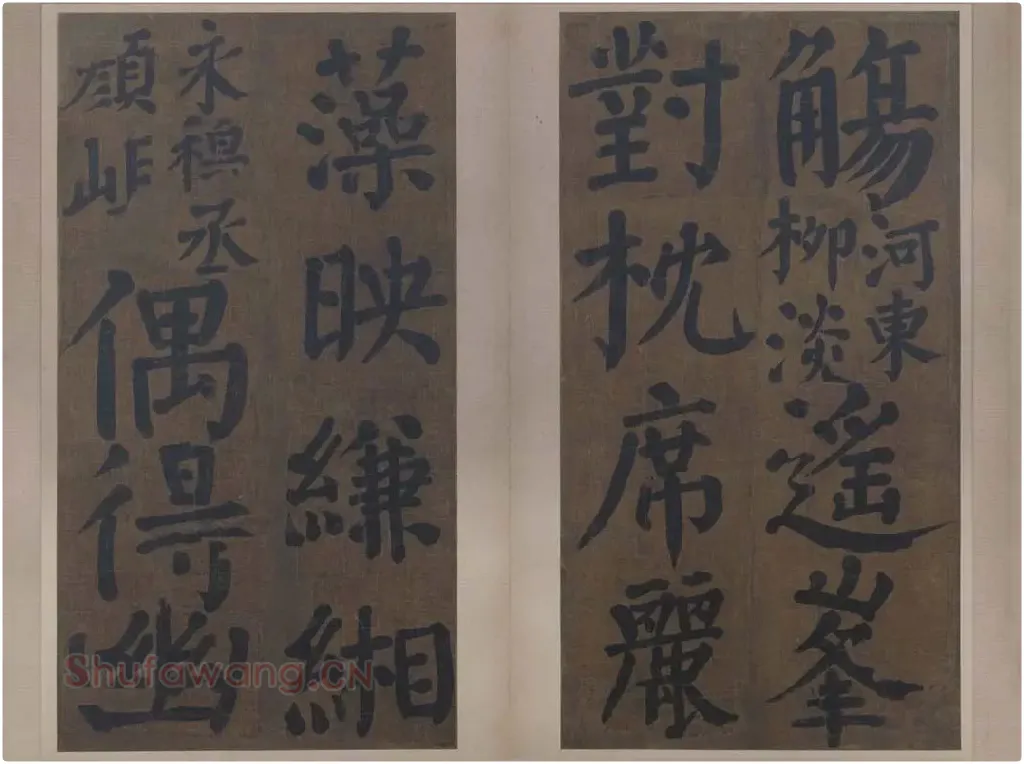 觴河東
柳淡遙峯
對枕席麗
藻映縑緗
永穆丞
顏峴偶得幽
Shufawang.CN